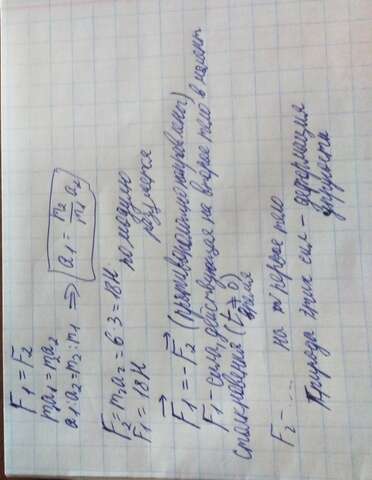 F1 = F2
m1a1 = m2a2
a1:a2 = m2:m1 => a1 = m2/m1 a2
F2 = m2a2 = 6·3 = 18Н по модулю
F1 = 18Н
F1 = -F2 (противоположно направлены)
F1 - сила, действующая на второе тело в момент
столкновения (t ≠ 0)
время
F2 - ... на первое тело
Природа этих сил - деформация